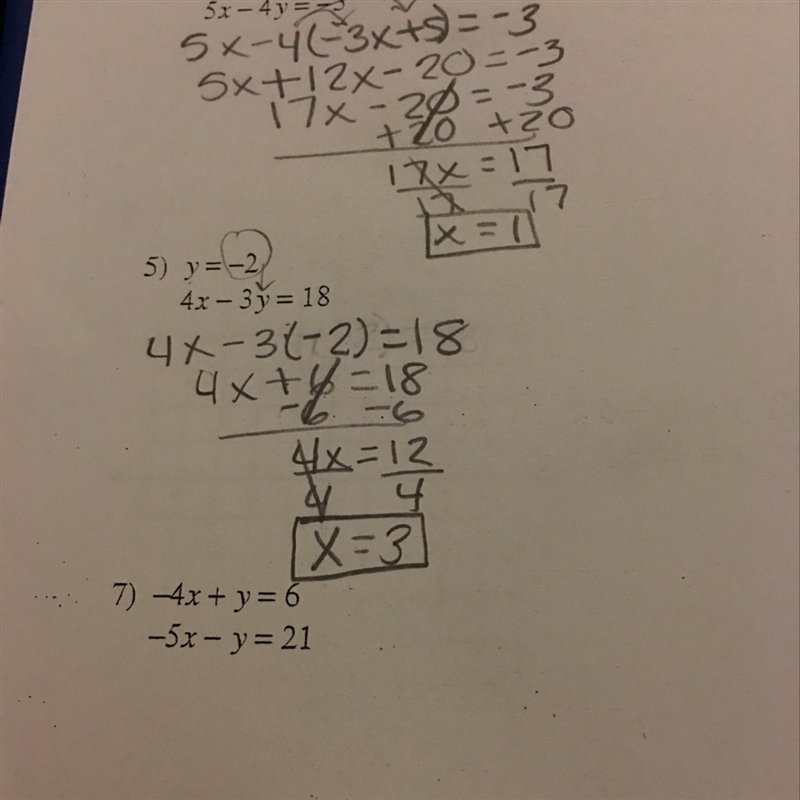 5x – 4y = –3
5x - 4(-3x+5) = -3
5x + 12x - 20 = -3
17x - 20 = -3
+20 +20
17x = 17
17 17
x = 1
5) y = –2
4x – 3y = 18
4x - 3(-2) = 18
4x + 6 = 18
-6 -6
4x = 12
4 4
x = 3
7) –4x + y = 6
–5x – y = 21